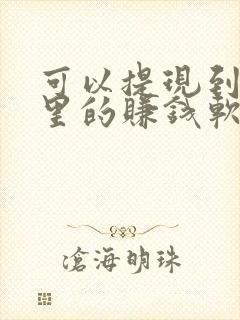 可以提現到
里的賺錢軟
滄海明珠